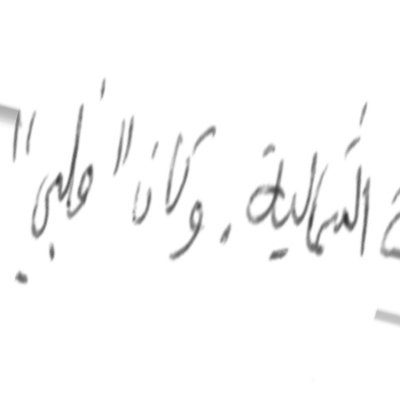 الشمالية. وكانا "قلبي"